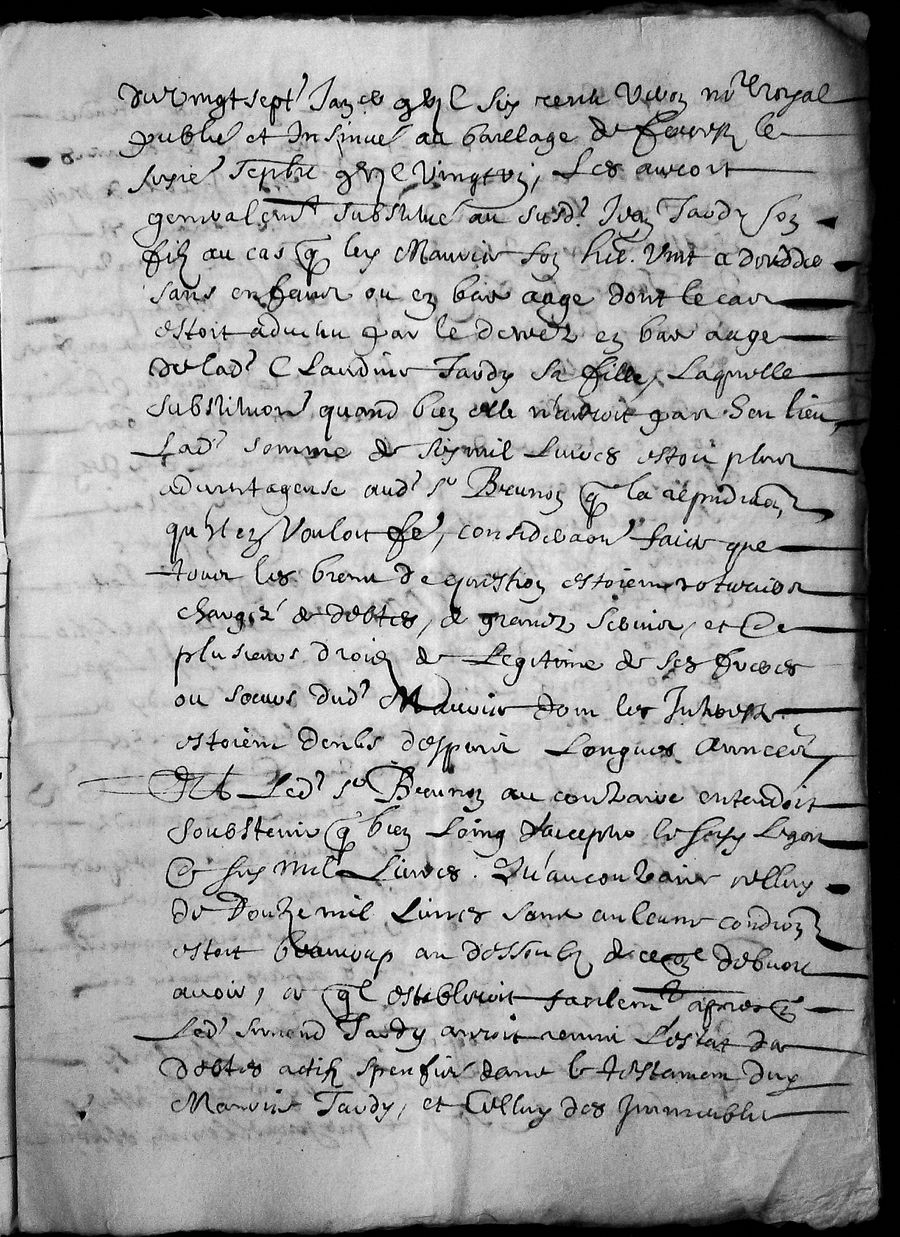 du vingt sept.e Jan.er g vj C six receu Viron no.re Royal
publié et Insinué au bailliage de forestz le
sixie septbre g vj C vingt six, Les auroit
genneralemt substitué au susd.t Jean Tardy son
filz au cas q led Mauris son frere vint a decedder
sans enfans ou en bas aage dont le cas
estoit advenu par le decedz en bas aage
de lad.t Claudine Tardy sa fille, Laquelle
substitution quand bien elle n'auroit pas son lieu,
Lad.t somme de six mil Livres estoit plus
advantageuse aud.t sr Brunon q la repudiaon
qu'il en vouloit fe, consideraon faicte que
tous les biens de question estoient
chargéz de debtes, de grandz servis, et de
plusieurs droitz de Legitime de ses freres
ou sœurs dud.t Mauris dont les Interestz
estoient deubz despuis Longues annees,
Et Led.t sr Brunon au contraire entendoit
soubstenir q bien Loing daccepter le susd Legat
de six mil Livres. Qu'au contraire celluy
de Douze mil Livres sans aulcune condion
estoit beaucoup au dessoubz de ce qil debvoit
avoir, ce qil establiroit facilemt apres q
Led.t simond Tardy auroit remis L'estat des
debtes actifz speciffies dans le testament dud
Mauris Tardy, et Celluy des Immeubles